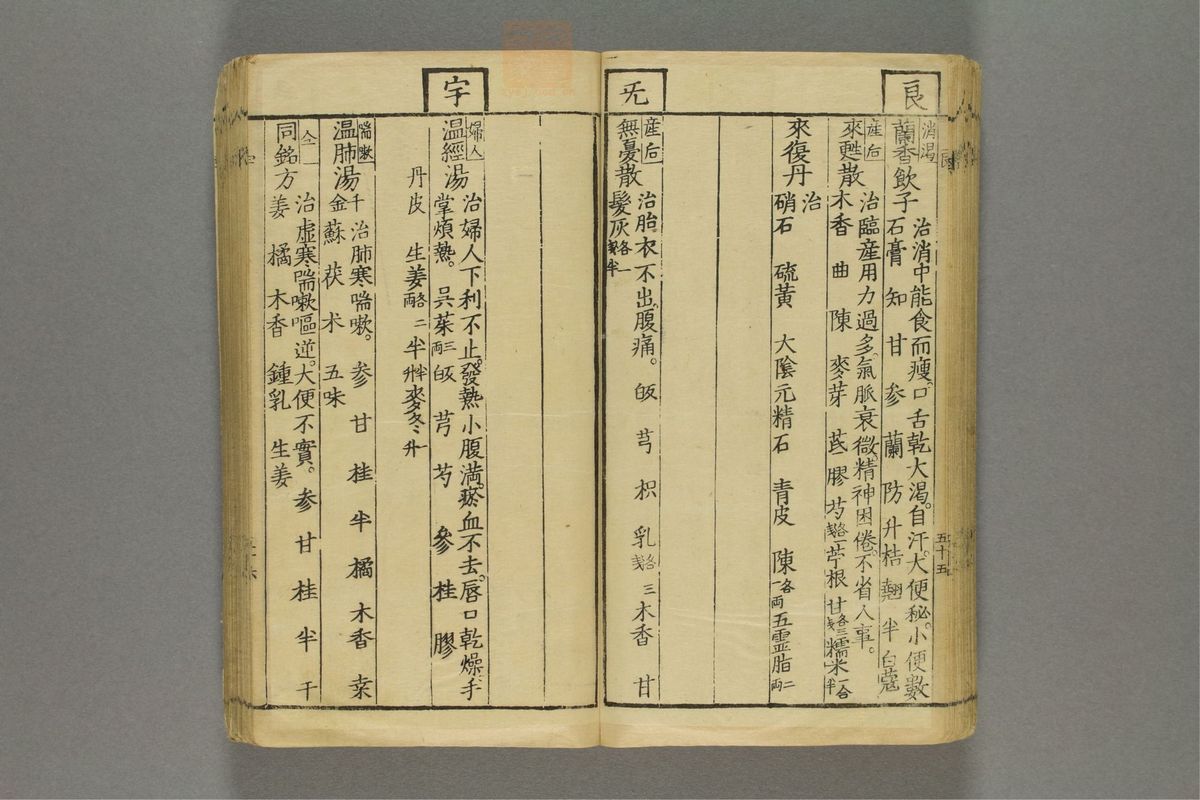 良
消渴
蘭香飲子
治消中能食而瘦。口舌乾大渴。自汗。大便秘。小便數
石膏 知 甘 参 蘭 防 升 桔 翹 半 白蔻
産后
來甦散
治臨産用力過多。氣脈衰微。精神困倦。不省人事。
木香 曲 陳 麥芽 芪 膠 芍各一戔 苧根 甘各三戔 糯米一合半
來復丹
治
硝石 硫黃 大陰元精石 青皮 陳各一兩 五霊脂二兩
五十五
旡
産后
無憂散
治胎衣不出。腹痛。 皈 芎 枳 乳各三戔 木香 甘
髮灰各一戔半
宇
婦人
温經湯
治婦人下利不止。發熱小腹満。瘀血不去。唇口乾燥。手
掌煩熱。 呉茱三両 皈 芎 芍 參 桂 膠
丹皮 生姜各二両 半半升 麥冬一升
喘嗽
温肺湯
千金
治肺寒喘嗽。 参 甘 桂 半 橘 木香 桒
蘇 茯 朮 五味
仝
同銘方
治虚寒喘嗽嘔逆。大便不實。 参 甘 桂 半 干
姜 橘 木香 鍾乳 生姜